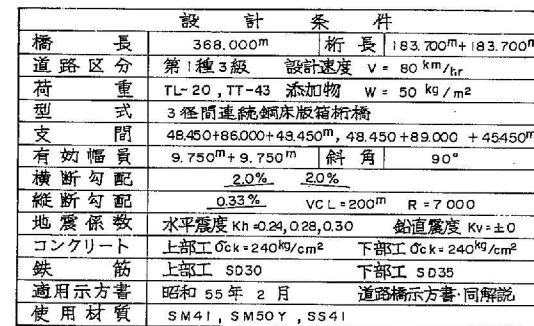 設計条件
橋長 368.000m 桁長 183.700m+183.700m
道路区分 第1種3級 設計速度 V = 80 km/hr
荷重 TL-20, TT-43 添加物 W = 50 kg/m²
型式 3径間連続鋼床版箱桁橋
支間 48.450+86.000+48.450m, 48.450+89.000+45.450m
有効幅員 9.750m+9.750m 斜角 90°
横断勾配 2.0% 2.0%
縦断勾配 0.33% VCL=200m R=7000
地震係数 水平震度 Kh=0.24,0.28,0.30 鉛直震度 Kv=±0
コンクリート 上部工 σck=240kg/cm² 下部工 σck=240kg/cm²
鉄筋 上部工 SD30 下部工 SD35
適用示方書 昭和55年2月 道路橋示方書・同解説
使用材質 SM41, SM50Y, SS41